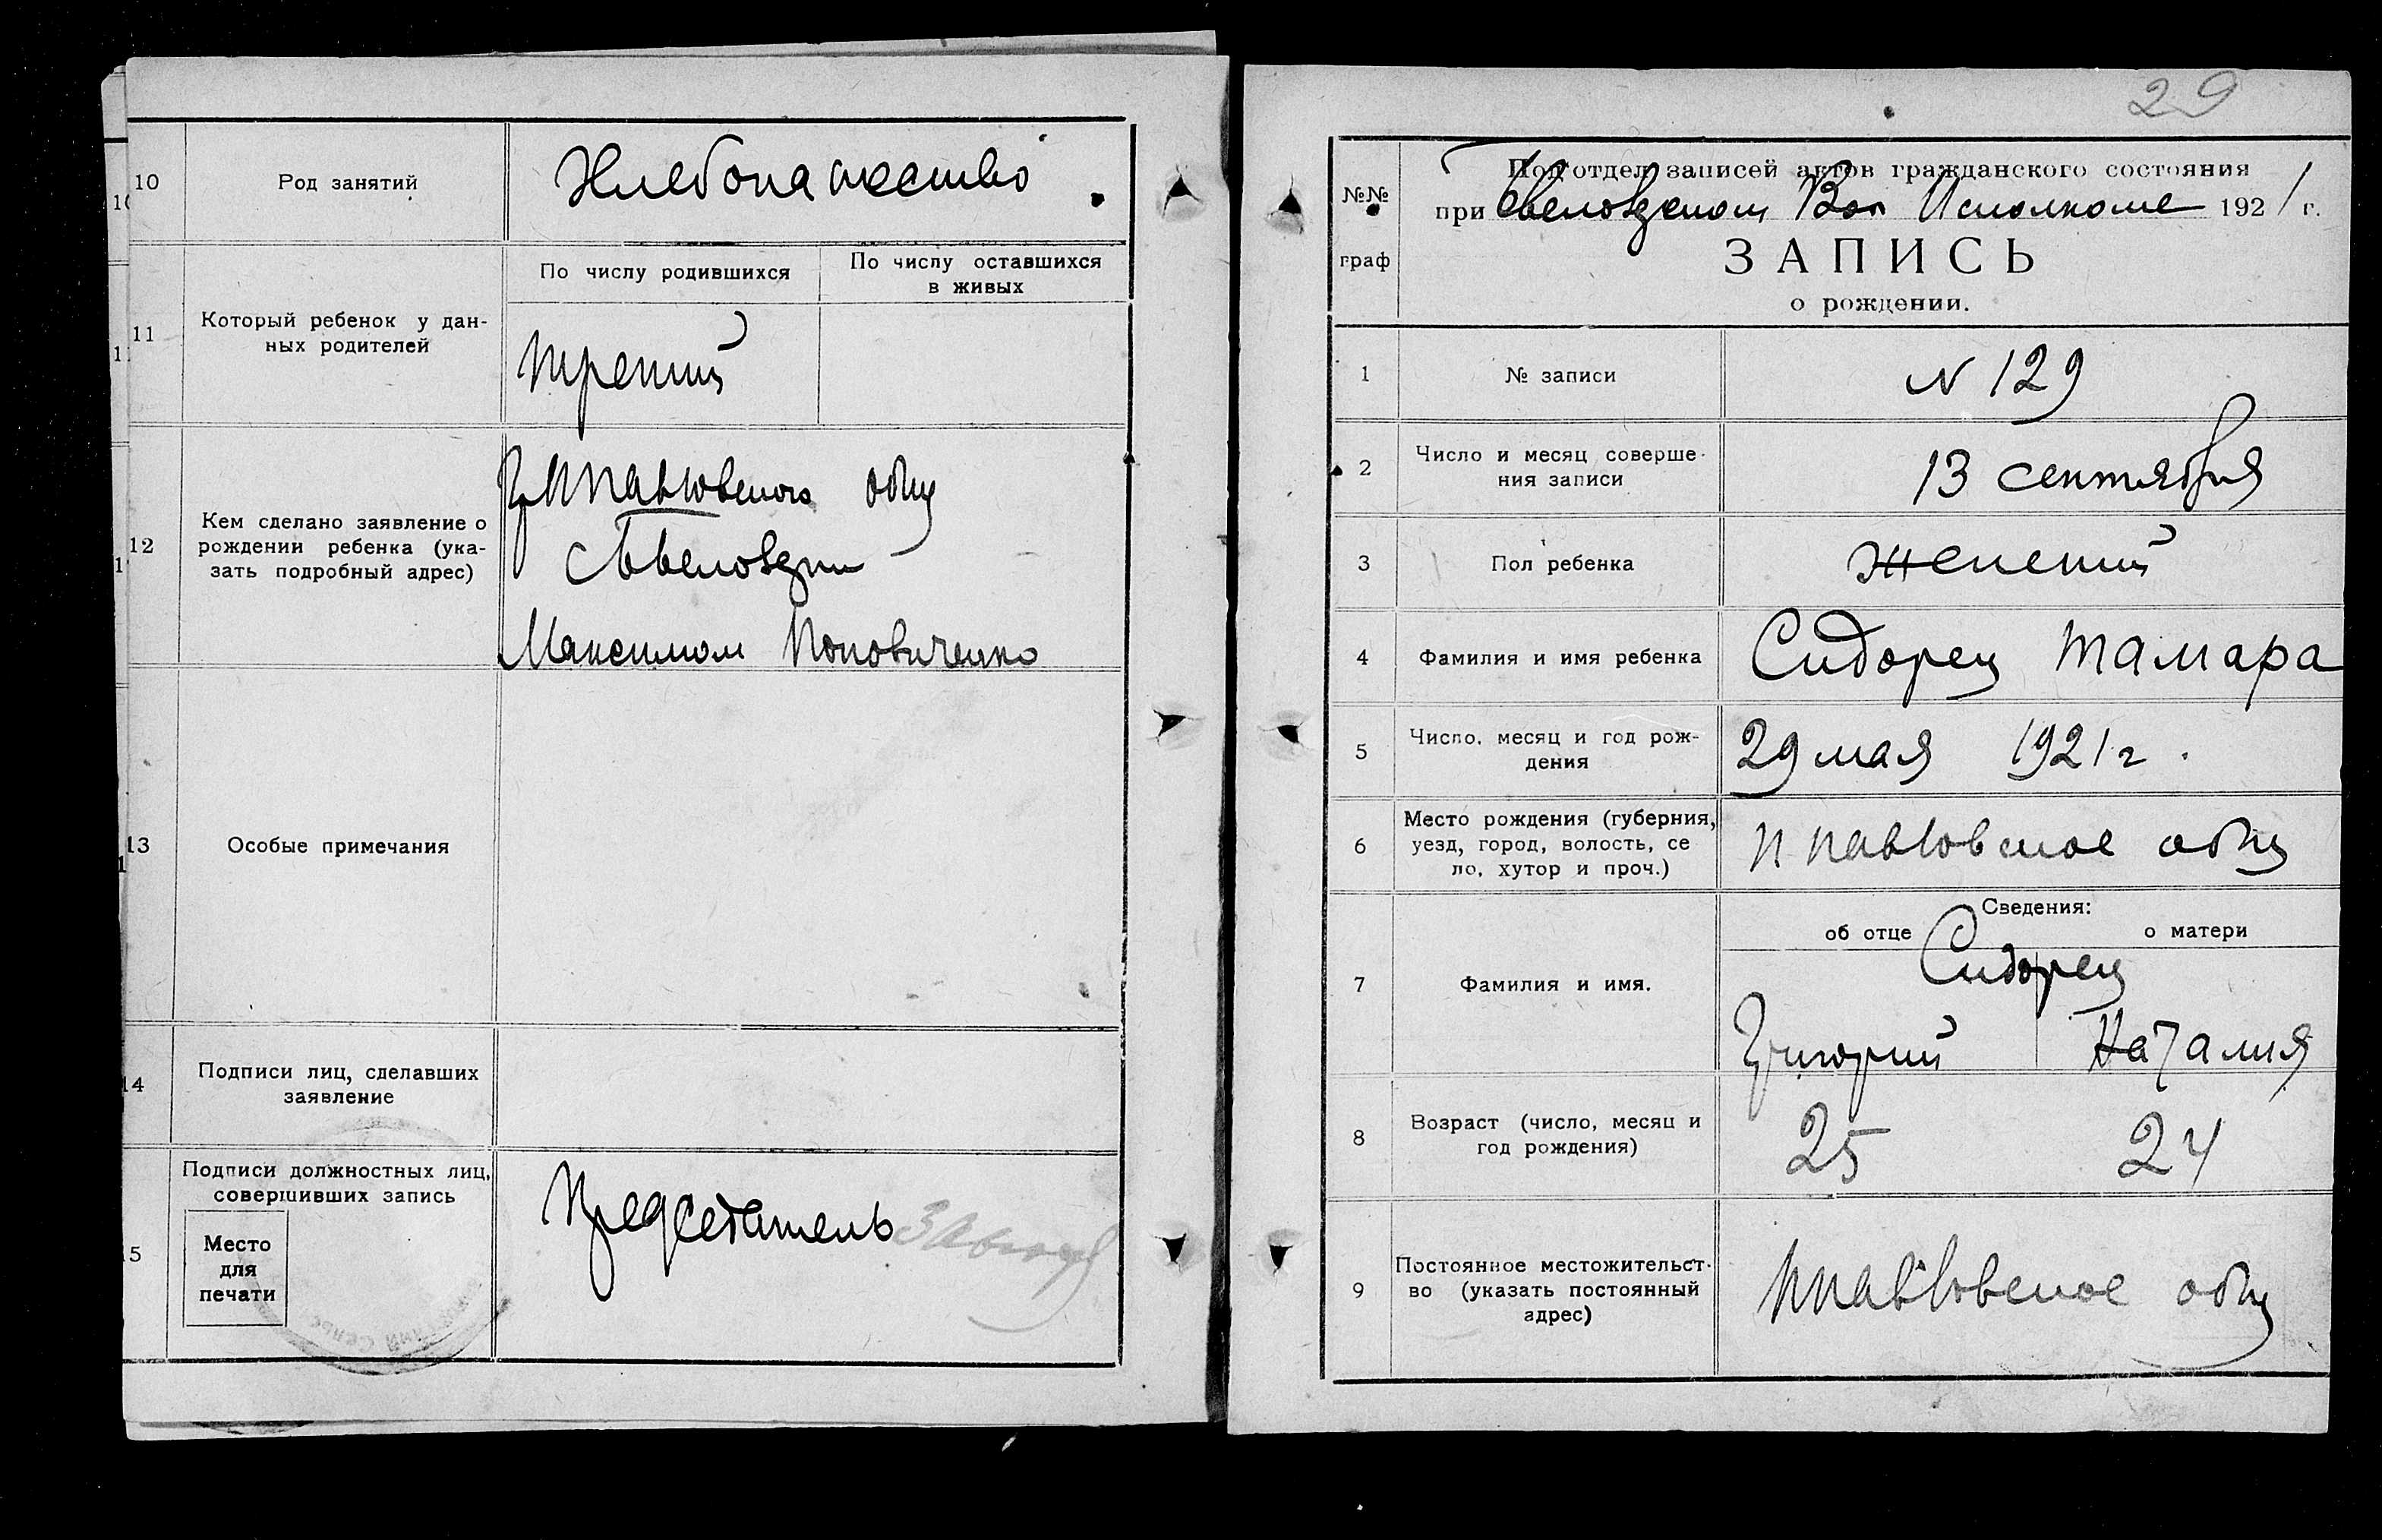 10
Род занятий
Хлебопашество
11
Который ребенок у дан-
ных родителей
По числу родившихся
По числу оставшихся
в живых
третий
12
Кем сделано заявление о
рождении ребенка (ука-
зать подробный адрес)
общ
Максимом Поповиченко
13
Особые примечания
14
Подписи лиц, сделавших
заявление
15
Подписи должностных лиц,
совершивших запись
Место
для
печати
Председатель
29
№№
граф
Подотдел записей актов гражданского состояния
при Вол Исполкоме 1921 г.
ЗАПИСЬ
о рождении.
1
№ записи
N 129
2
Число и месяц соверше-
ния записи
13 сентября
3
Пол ребенка
женский
4
Фамилия и имя ребенка
Сидорец Тамара
5
Число, месяц и год рож-
дения
29 мая 1921 г.
6
Место рождения (губерния,
уезд, город, волость, се
ло, хутор и проч.)
общ
7
Фамилия и имя.
Сведения:
об отце
о матери
Сидорец
Григорий Наталия
8
Возраст (число, месяц и
год рождения)
25 24
9
Постоянное местожительст-
во (указать постоянный
адрес)
общ